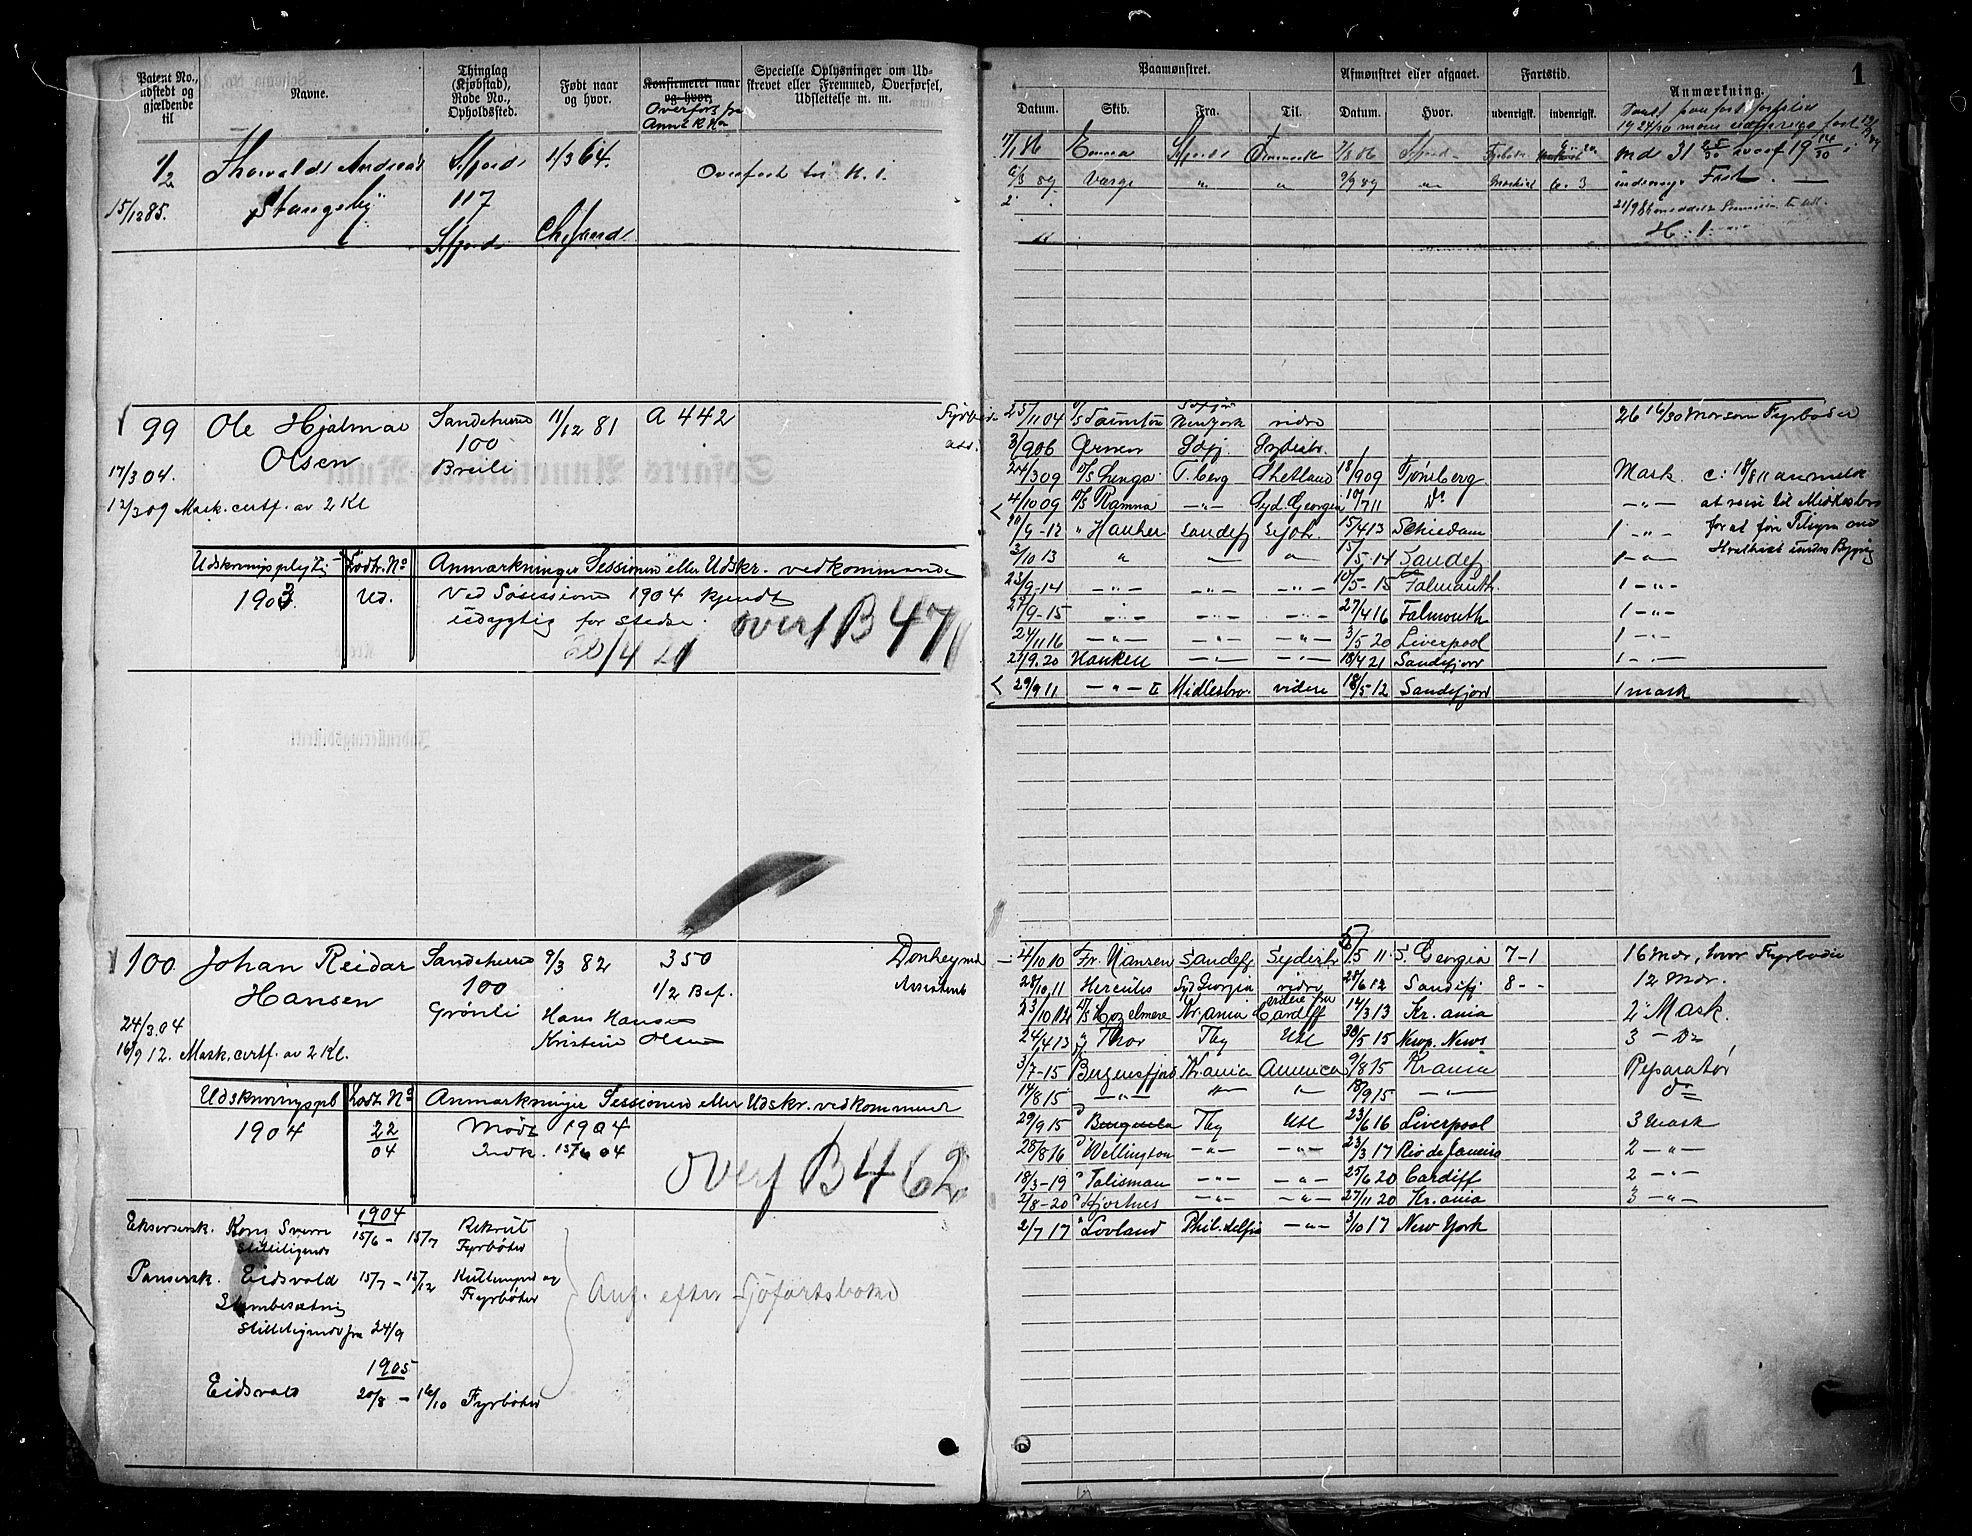 Patent No., udstedt og gjældende til
Navne.
Thinglag (Kjøbstad), Rode No., Opholdssted.
Født naar og hvor.
Konfirmeret naar og hvor.
Overført fra Annot. R. No
Specielle Oplysninger om Udskrevet eller Fremmed, Overførsel, Udslettelse m. m.
1/2
Thorvald Andreas
Sfjord
1/3 64.
Overført til H. 1.
15/12 85.
Stangeby
117
Sfjord
99
Ole Hjalmar
Sandeherred
11/12 81
A 442
Olsen
100
Breili
17/3 04.
12/3 09 Mask. certf. av 2 Kl
Udskrivningspligtig
Lodtr. No
Anmærkninger Sessionen eller Udskr. vedkommende
1903
Ud.
Ved Søsession 1904 kjendt
udygtig for stedse.
overf B 471
20/4 21
100
Johan Reidar
Sandeherred
9/3 82
350
Donkeymd
Hansen
100
1/2 Bef.
Assistent
Grønli
Hans Hansen
24/3 04
Kristine Olsen
16/9 12. Mask. certf. av 2 Kl.
Udskrivningspl
Lodt. No
Anmærkninger Sessionen eller Udskr. vedkommende
1904
22/04
Mødt 1904
Indk. 15/6 04
overf B 462
1904
Eksersersk. Kong Sverre 15/6 - 15/7 Rekrut
Stilleliggende
Fyrbøter
Pansersk. Eidsvold 15/7 - 15/12 Kullemper og
Fyrbøter
Anf. efter Sjøfartsboken
Stambesætning
stilleliggende fra 24/9
1905
Eidsvold 20/8 - 16/10 Fyrbøter
1
Paamønstret.
Afmønstret eller afgaaet.
Fartstid.
Anmærkning.
Datum.
Skib.
Fra.
Til.
Datum.
Hvor.
udenrigsk.
indenrigsk.
1/1 86 Emma Sfjord 7/8 86 Sfjord
6/3 89 Varge " " 9/9 89 " Maskist
H. 1.
25/11 04 New York vidre 26 16/30 Mdr som Fyrbøder
3/9 06 Sfj. Sydishv.
24/3 09 T.berg Shetland 18/9 09 Tønsberg Mask. c: 18/8 11 anmeldt
4/10 09 D/S Ramna -"- Syd Georgia 10/7 11 Do -"- at reise til Midlesbro
20/9-12 " Hauken Sandefj Sysh. 15/4 13 Schiedam 1 -"- for at føre Tilsyn med
3/10 13 " " 15/5-14 Sandefj 1 -"- Hvalskib under Bygning
23/9-14 -"- -"- -"- 10/5-15 Falmouth 1 -"-
27/9-15 -"- -"- -"- 27/4 16 Falmouth 1 -"-
24/11 16 -"- -"- -"- 3/5 20 Liverpool 1 -"-
25/9.20 Hauken -"- -"- 18/4 21 Sandefjord 1 -"-
29/9 11 -"- II Midlesbro. videre 18/5-12 Sandefjord 1 mask
4/10 10 Fr. Nansen Sandefj Sydishv 5/5 11 S. Georgia 7-1 16 Mdr, hvor Fyrbøder
28/10 11 Hercules Syd Georgia vidre 28/6 12 Sandefj 8 - - 12 Mdr.
23/10 12 D/S Hazelmere Kr.ania videre fra Cardiff 14/3 13 Kr.ania 2 Mask.
24/4 13 " Thor Tbg Utl 30/5 15 Newp. News 3 - Do
3/7-15 Bergensfjord Kr.ania America 9/8 15 Kr.ania Reparatør
14/8 15 -"- " " 18/9 15 -"- do
29/9 15 Tbg Utl 23/6 16 Liverpool 3 mask
28/8 16 " Wellington -"- -"- 23/3 17 Rio de Janeiro 2 -"-
18/3-19 " Talisman -"- -"- 25/6 20 Cardiff 2 -"-
2/8-20 " Hjortnes -"- -"- 27/11 20 Kr.ania 3 -"-
2/7 17 " Lovland Philadelfia -"- 3/10 17 New York